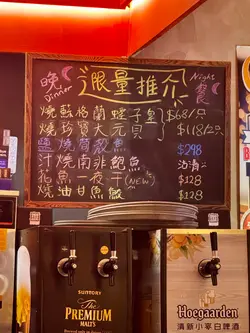 晚
Dinner
限量推介
Night
餐
燒蘇格蘭蟶子皇 $68/只
燒珍寶大元貝 $118/2只
鹽燒原殼魚 $298
汁燒南非鮑魚
花魚一夜干(NEW) $128
燒油甘魚鮫 $128
SUNTORY
The
PREMIUM
MALT'S
Hoegaarden
清新小麥白啤酒